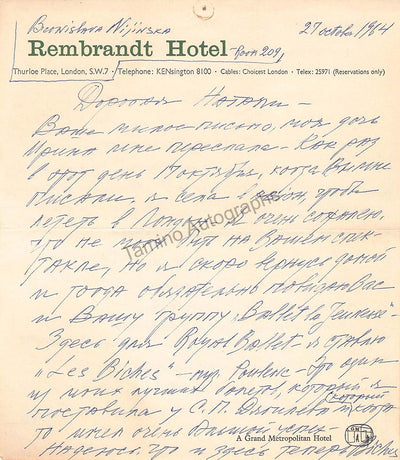 Bronislava Nijinska 27 october 1964
Rembrandt Hotel - Room 209,
Thurloe Place, London, S.W.7 · Telephone: KENsington 8100 · Cables: Choicest London · Telex: 25971 (Reservations only)
Дорогая Натали -
Ваше милое письмо, моя дочь
Ирина мне переслала. Как раз
в этот день Октября, когда Вы мне
писали, я села в avion, чтобы
лететь в Лондон. Я очень сожалею,
что не на Вашем спек-
такле, но я скоро вернусь домой
и тогда обязательно повидаю Вас
и Вашу группу "Ballet la Jeunesse"
Здесь для Royal Ballet - я ставлю
"Les Biches" - муз. Poulenc - это один
из моих лучших балетов, который я
поставила у С. П. Дягилева и который
то имел очень большой успех -
Надеюсь что и здесь теперь Biches
A Grand Metropolitan Hotel
Tamino Autographs